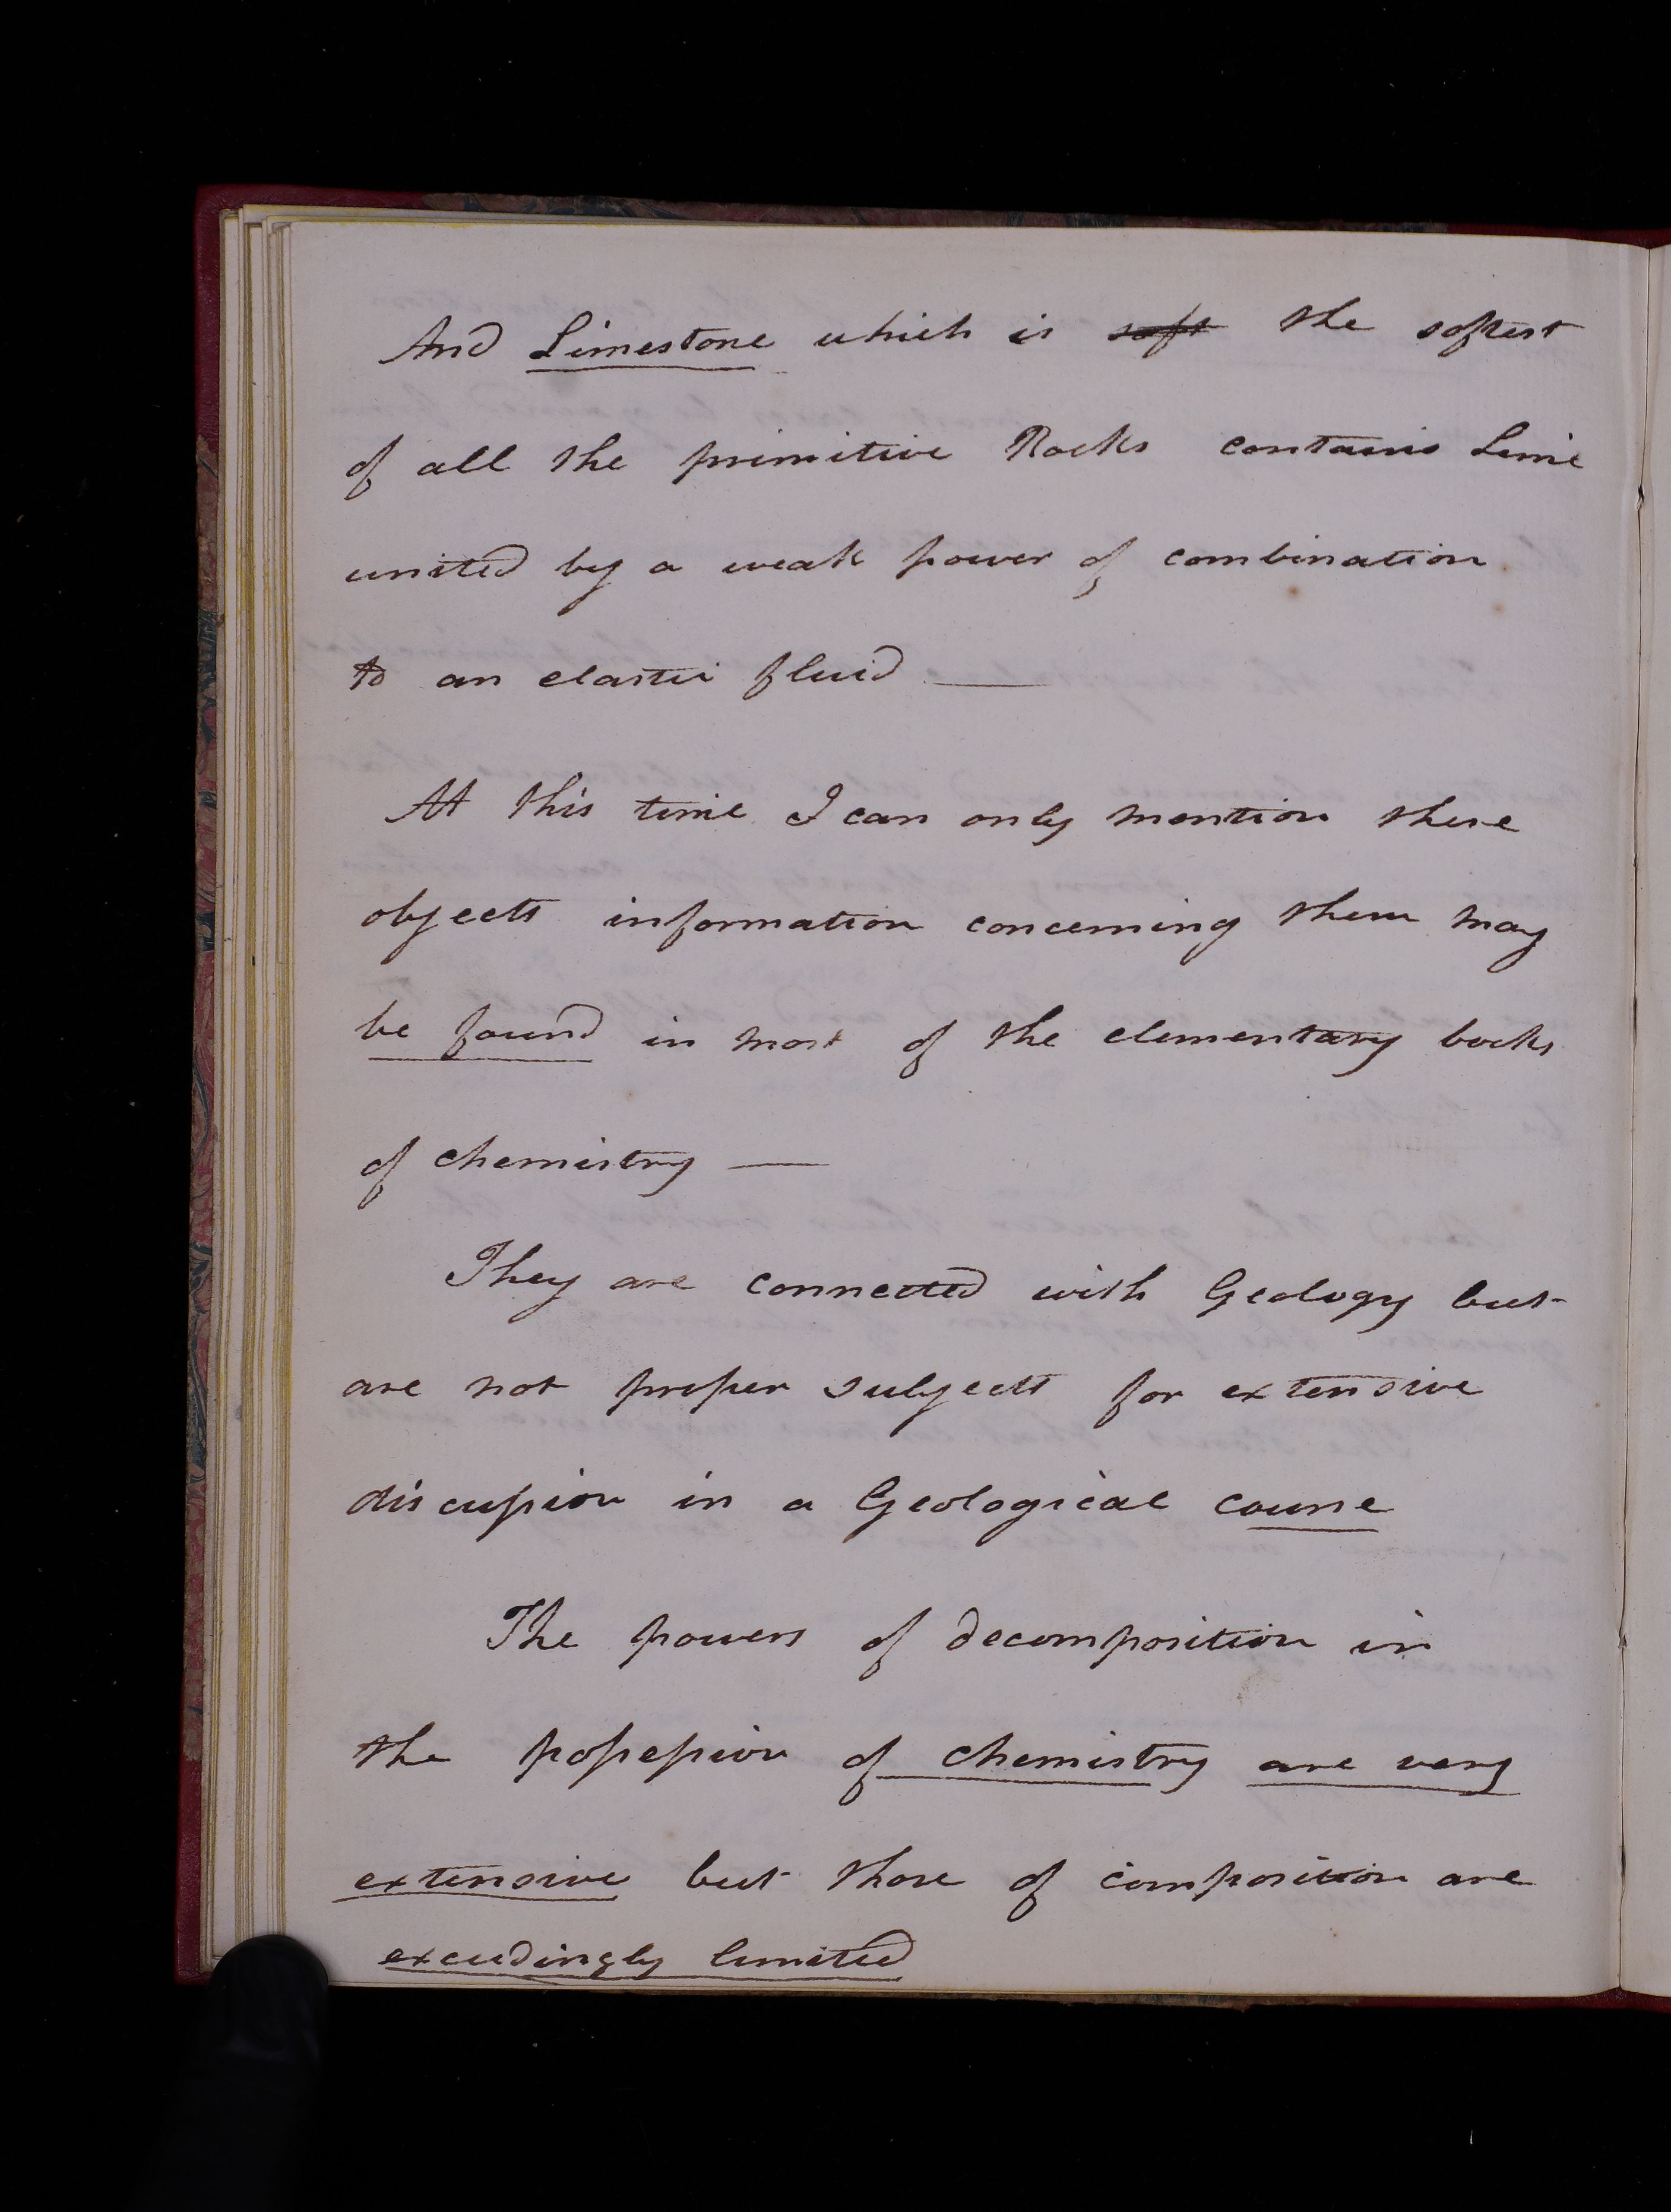 And Limestone which is soft the softest
of all the primitive Rocks contains Lime
united by a weak power of combination
to an elastic fluid —
At this time I can only mention these
objects information concerning them may
be found in most of the elementary books
of chemistry —
They are connected with Geology but
are not proper subjects for extensive
discussion in a Geological course
The powers of decomposition in
the possession of chemistry are very
extensive but those of composition are
exceedingly limited